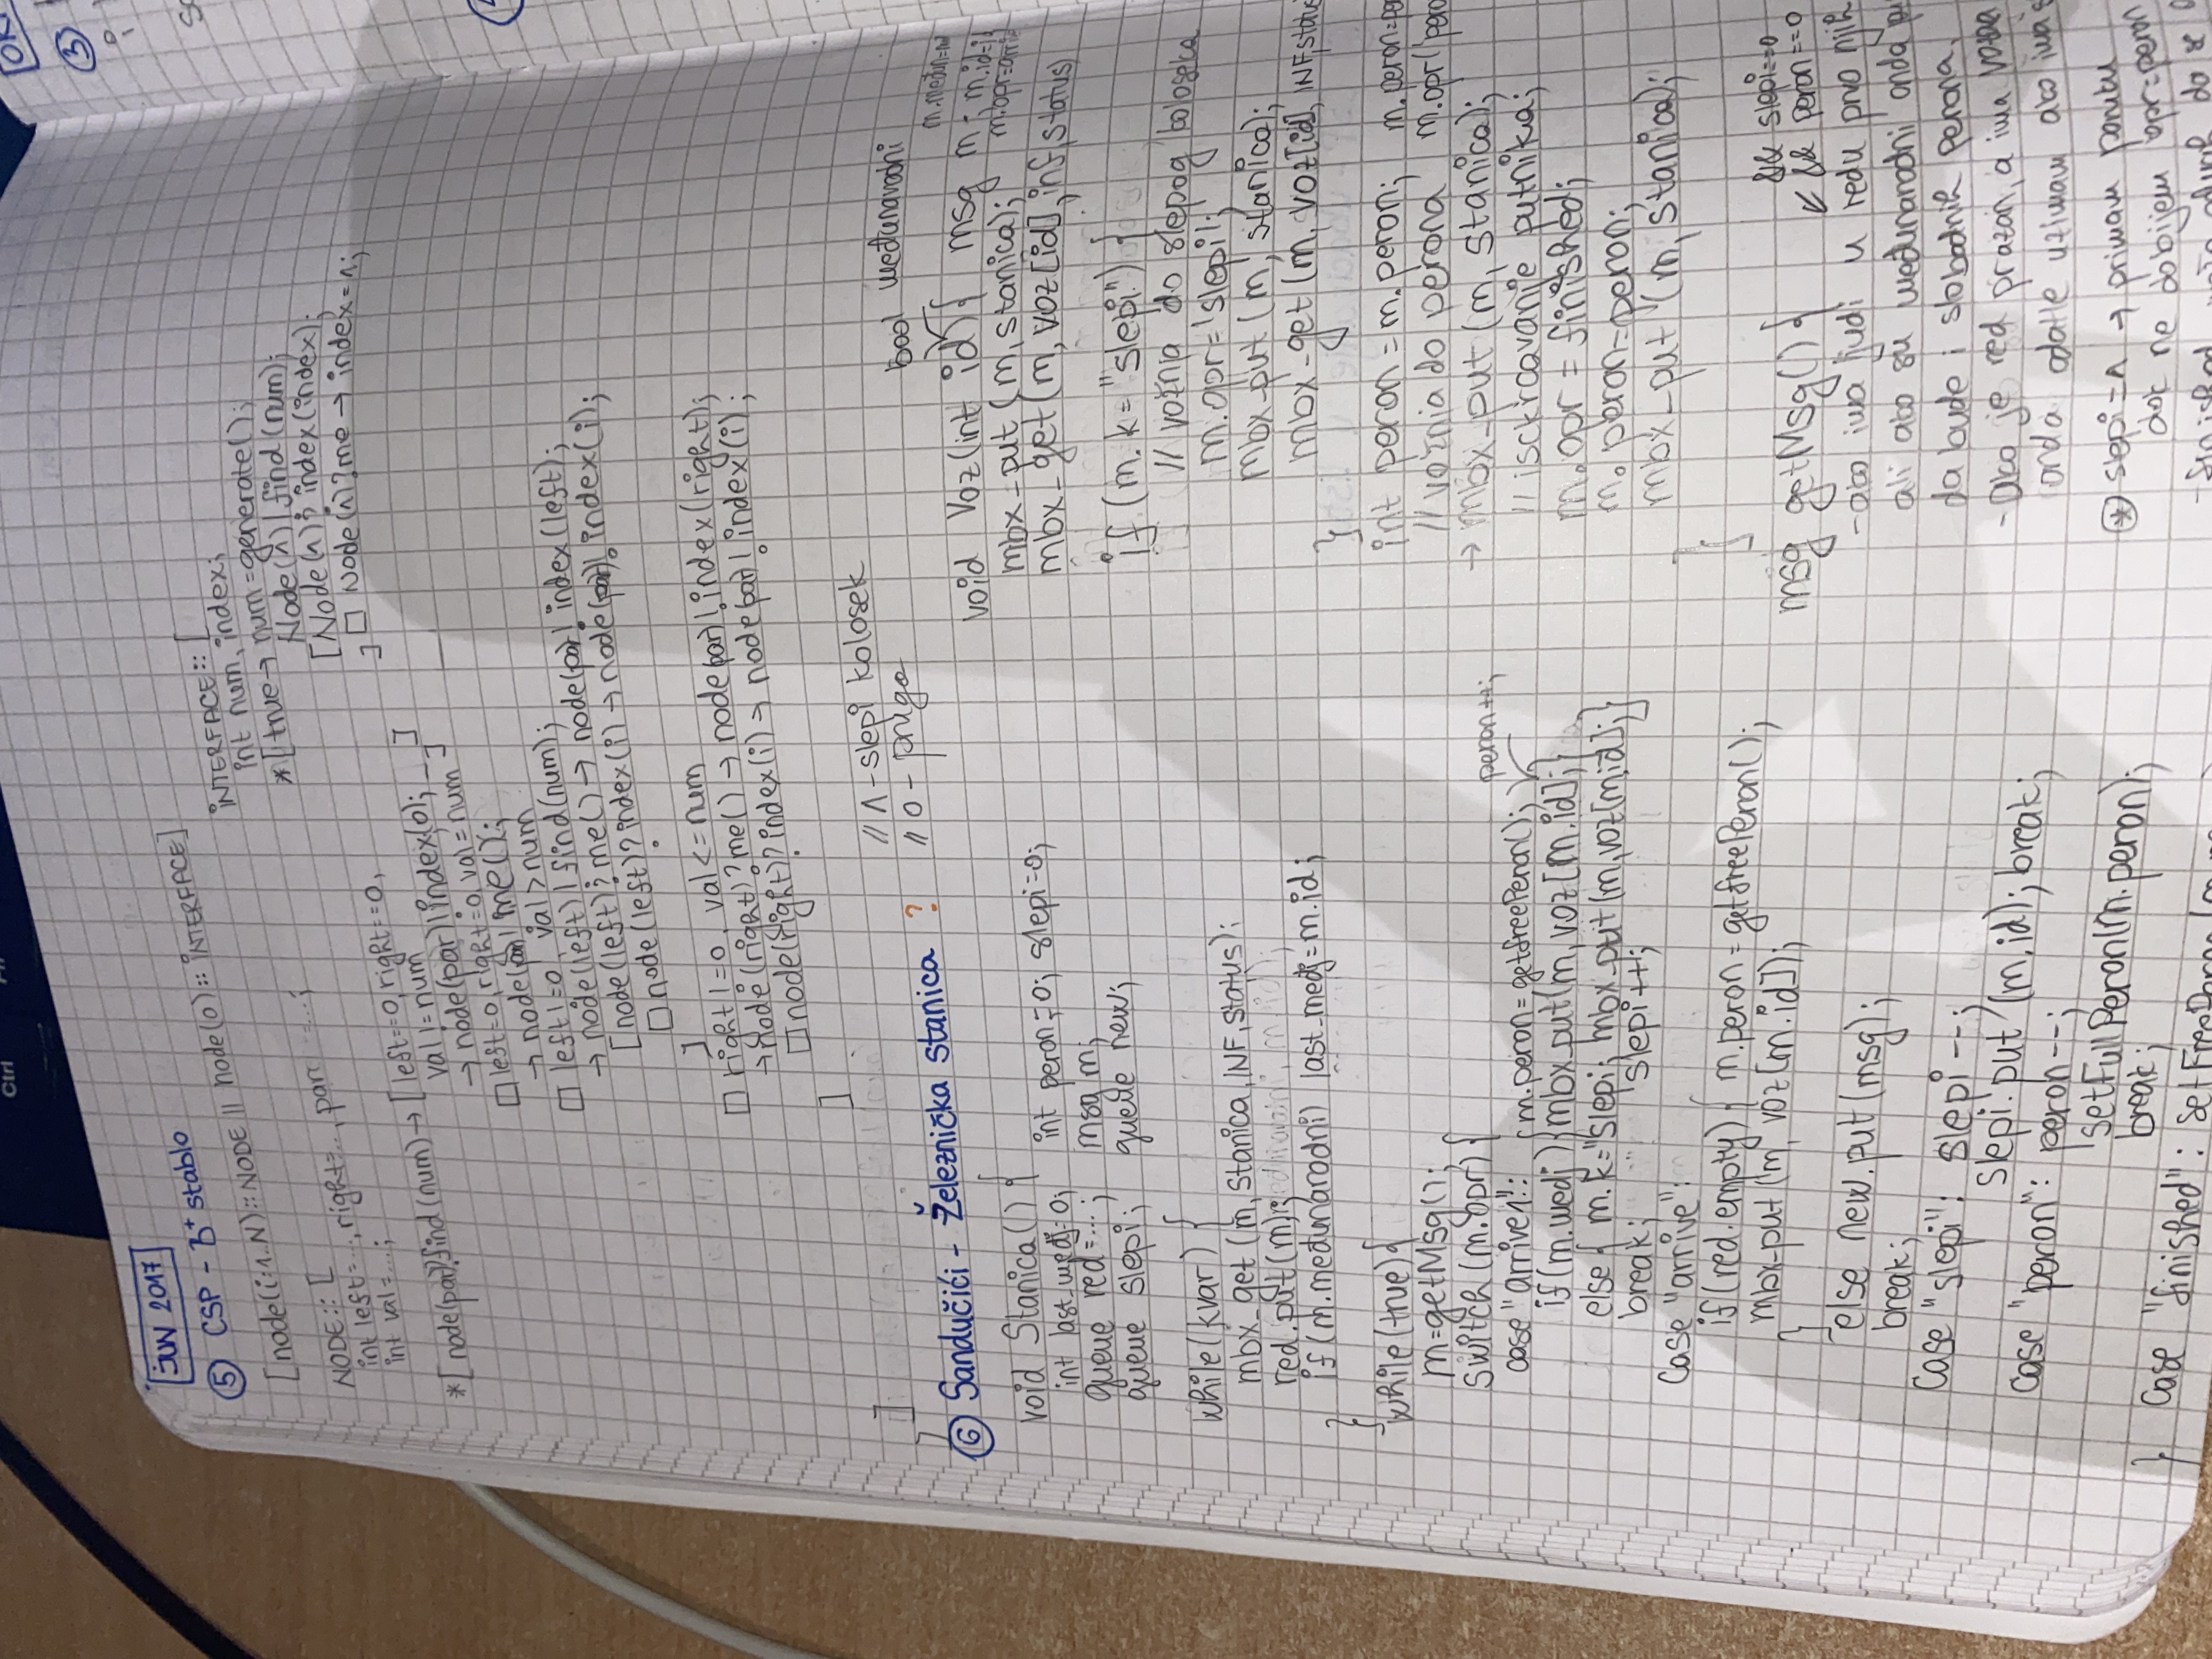 Ctrl
JUN 2017
⑤ CSP - B+ stablo
[node(i:1..N)::NODE || node(0)::INTERFACE]
NODE::[
int left=..., right=..., par=...;
int val=...;
*[node(par)?find(num)→[left==0,right==0,
val!=num
→ node(par)!index(0);
□ left=0,right=0,val=num
→ node(par)!me();
□ left!=0, val>num
→ node(left)!find(num);
[node(left)?me() → node(par)!index(left);
□node(left)?index(i) → node(par)!index(i);
]
□ right!=0, val<=num
→node(right)?me() → node(par)!index(right);
□node(right)?index(i) → node(par)!index(i);
]
]
]
INTERFACE::[
int num, index;
*[true→ num=generate();
Node(1)!find(num);
[Node(1)?index(index);
□ Node(1)?me → index=1;
]
⑥ Sandučići - Železnička stanica ?
// 1-slepi kolosek
// 0 - pruga
void Stanica(){
int last_medj=0; int peron=0; slepi=0;
queue red=...; msg m;
queue slepi; queue new;
while(kvar){
mbx_get(m,stanica,INF,status);
red.put(m);
if(m.međunarodni) last_medj=m.id;
}
while(true){
m=getMsg();
switch(m.opr){
case "arrive1": {m.peron=getfreePeron(); peron++;
if(m.medj){mbx_put(m,voz[m.id];}
else{ m.k="slepi; mbx_put(m,voz[m.id];}
break; slepi++;
case "arrive":
if(red.empty){ m.peron=getfreePeron();
mbx_put(m, voz[m.id]);
}
else new.put(msg);
break;
case "slepi": slepi--;
slepi.put(m.id); break;
case "peron": peron--;
setFullPeron(m.peron);
break;
} case "finished":
bool međunarodni
void Voz(int id){ msg m;
mbx_put(m,stanica);
mbx_get(m,voz[id],inf,status)
if(m.k="slepi"){
// vožnja do slepog koloseka
m.opr='slepi';
mbx_put(m, stanica);
mbx_get(m, voz[id], INF,status
}
int peron=m.peron;
//vožnja do perona
→ mbx_put(m,stanica);
// isckrcavanje putnika;
m.opr = finished;
m.peron=peron;
mbx_put(m, stanica);
}
&& slepi==0
msg getMsg(){ ↙ && peron==0
-ako ima ljudi u redu prvo njih
ali ako su međunarodni onda
da bude i slobodnih perona.
-ako je red prazan, a ima
onda odatle uzimam ako
⊛ slepi=1 → primam poruku
dok ne dobijem opr=peron
③